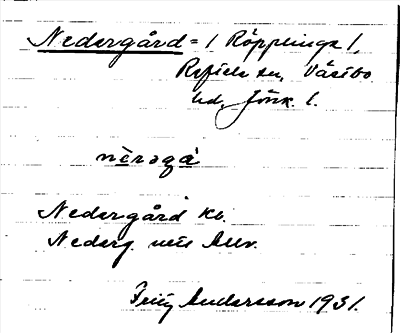 Nedergård = 1 Röpplinge 1,
Reftele sn, Västbo
hd, Jönk. l.
nèrəgà
Nedergård Kb.
Nederg. utt. Allv.
Fritz Andersson 1931.